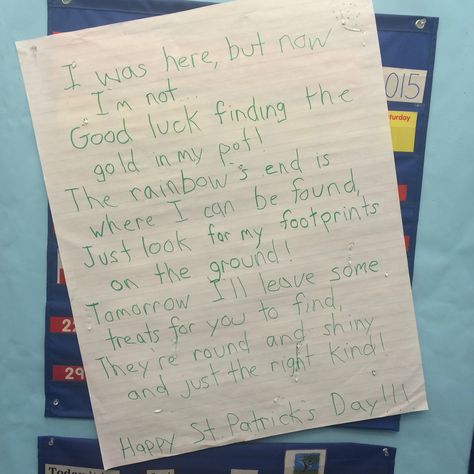 I was here, but now
I'm not...
Good luck finding the
gold in my pot!
The rainbow's end is
where I can be found,
Just look for my footprints
on the ground!
Tomorrow I'll leave some
treats for you to find,
They're round and shiny
and just the right kind!
Happy St. Patrick's Day!!!!
015
turday
22
29
Today